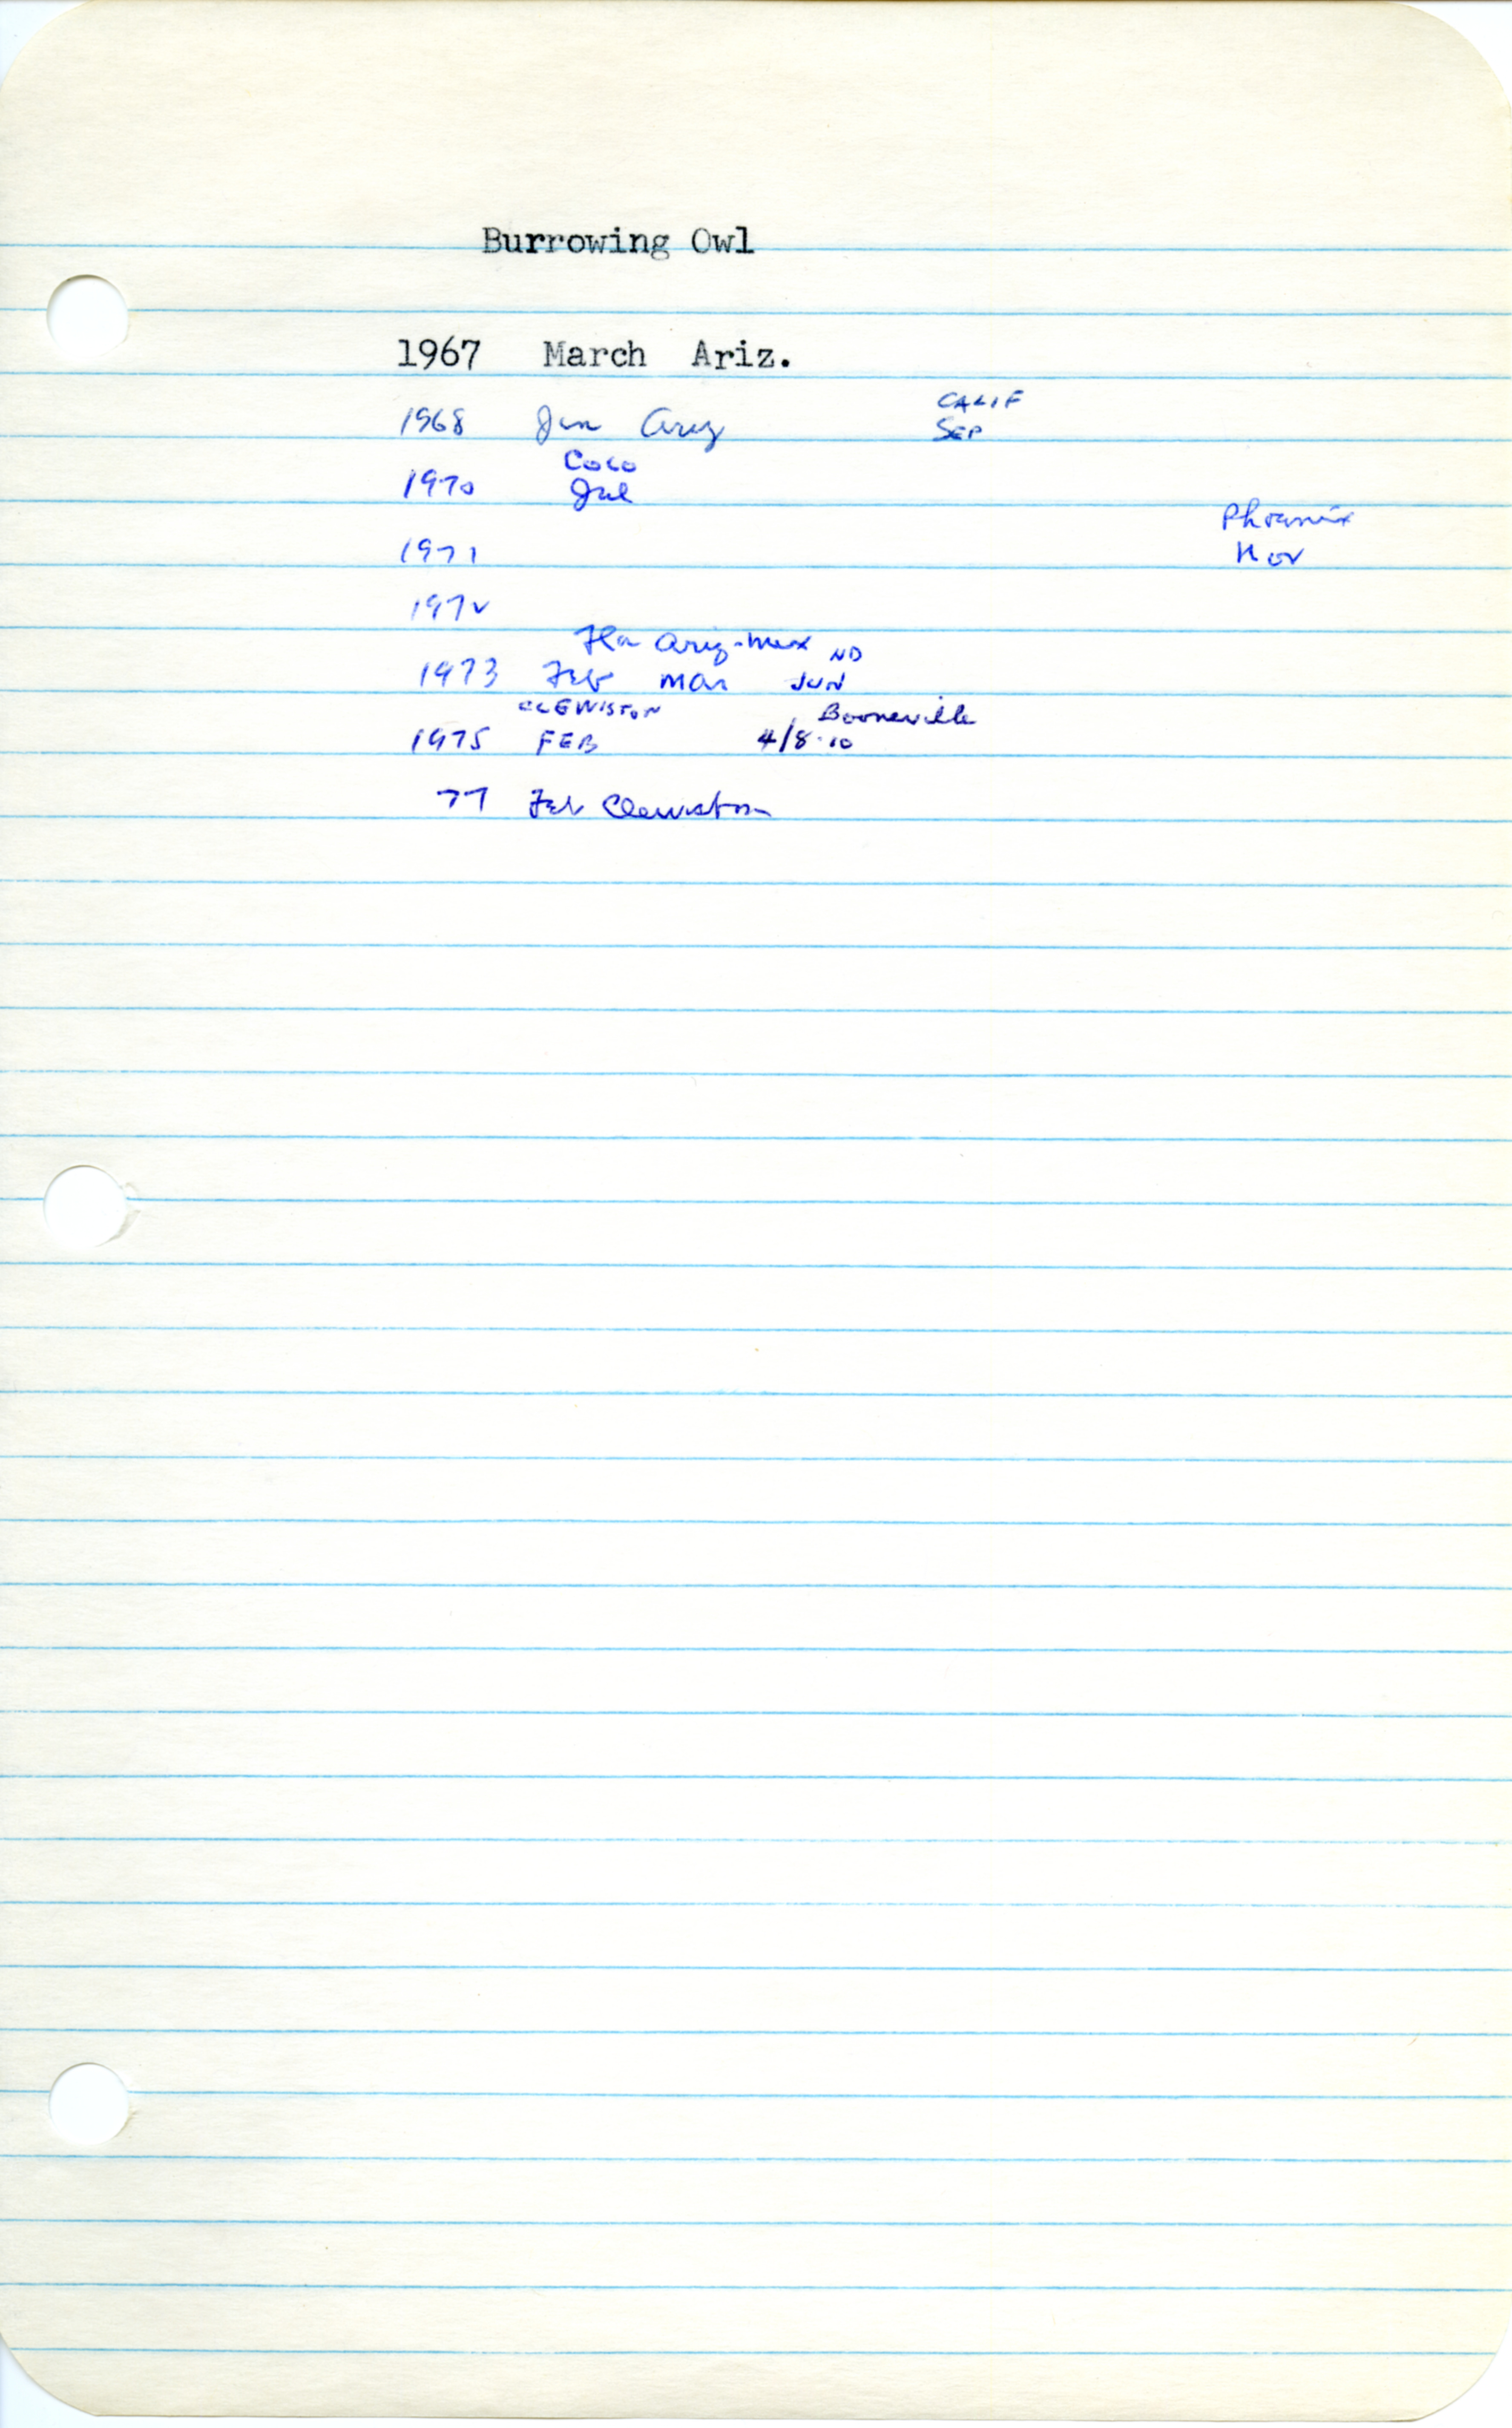 Burrowing Owl
1967 March Ariz.
CALIF
1968 Jan Ariz SEP
Colo
1970 Jul
Phoenix
1971 Nov
1972
Fla Ariz-Mex ND
1973 Feb Mar JUN
CLEWISTON Booneville
1975 FEB 4/8-10
77 Feb Clewiston